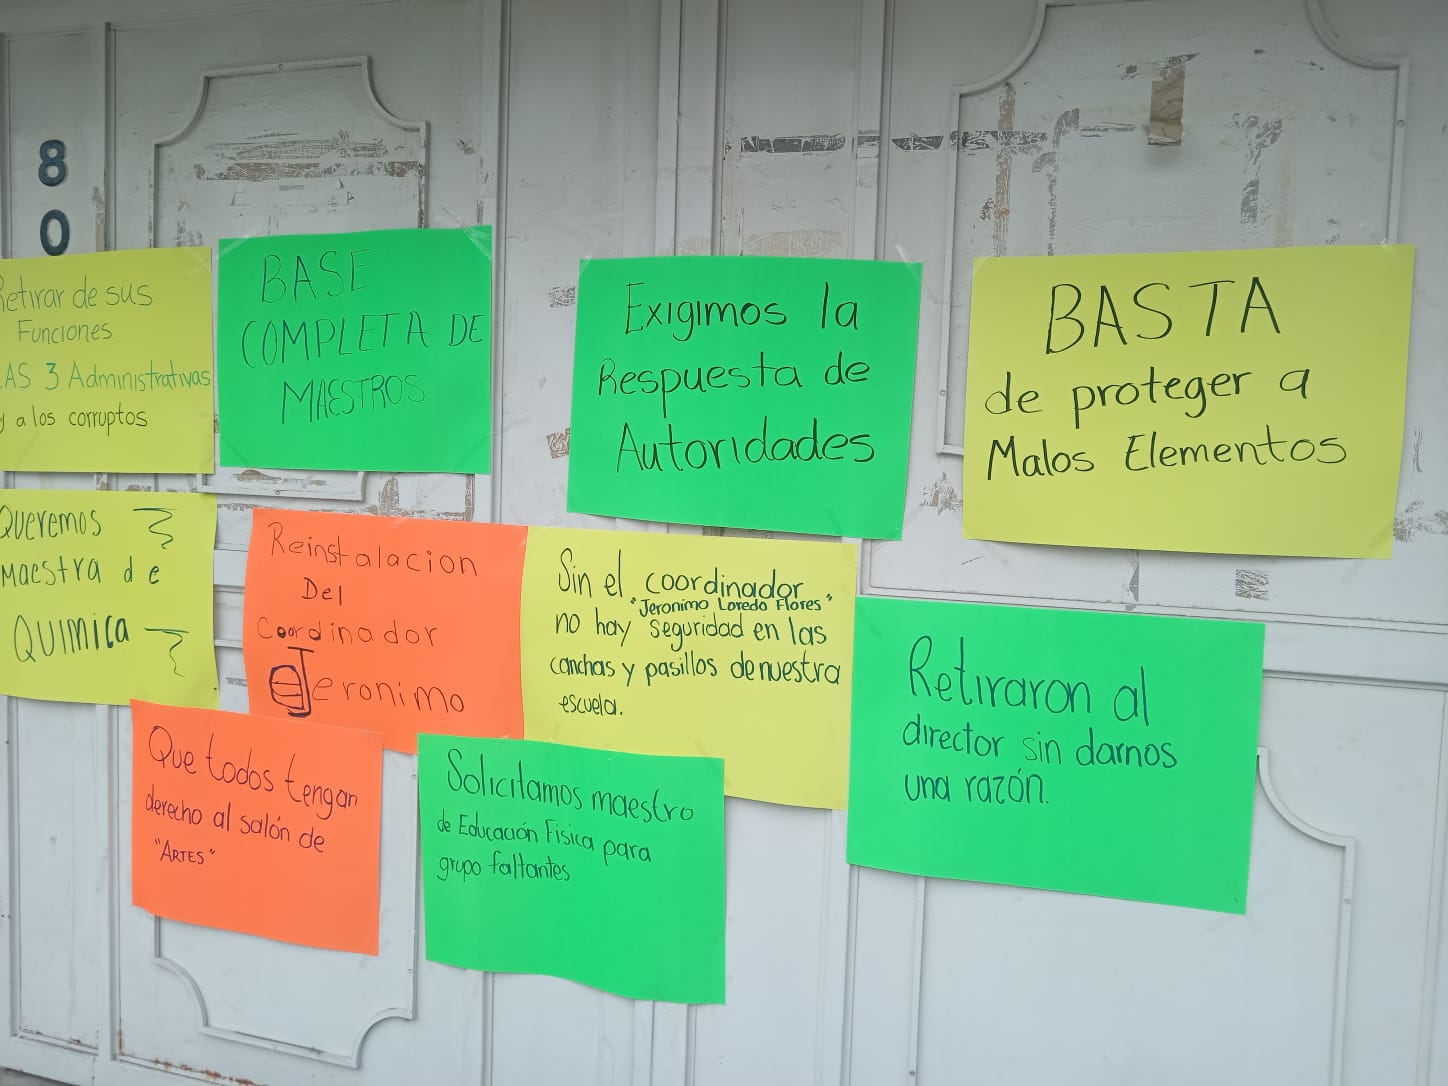 8
0
Retirar de sus
Funciones.
LAS 3 Administrativas
y a los corruptos
BASE
COMPLETA DE
MAESTROS
Exigimos la
Respuesta de
Autoridades
BASTA
de proteger a
Malos Elementos
Queremos
Maestra de
QUIMICA
Reinstalacion
Del
Coordinador
Jeronimo
Sin el coordinador
"Jeronimo Loredo Flores"
no hay seguridad en las
canchas y pasillos de nuestra
escuela.
Retiraron al
director sin darnos
una razón.
Que todos tengan
derecho al salón de
"ARTES"
Solicitamos maestro
de Educación Fisica para
grupo faltantes.